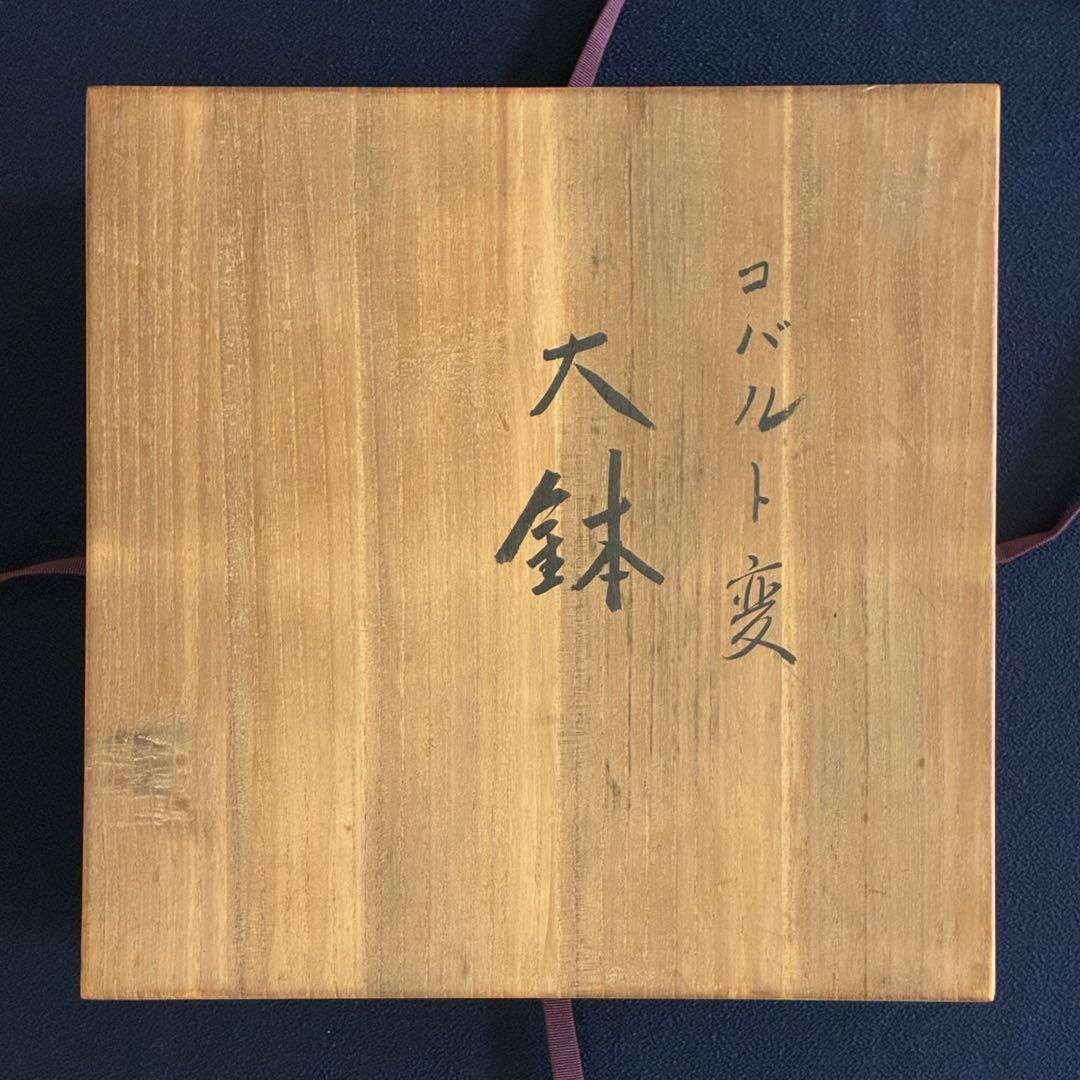 コバルト変
大鉢